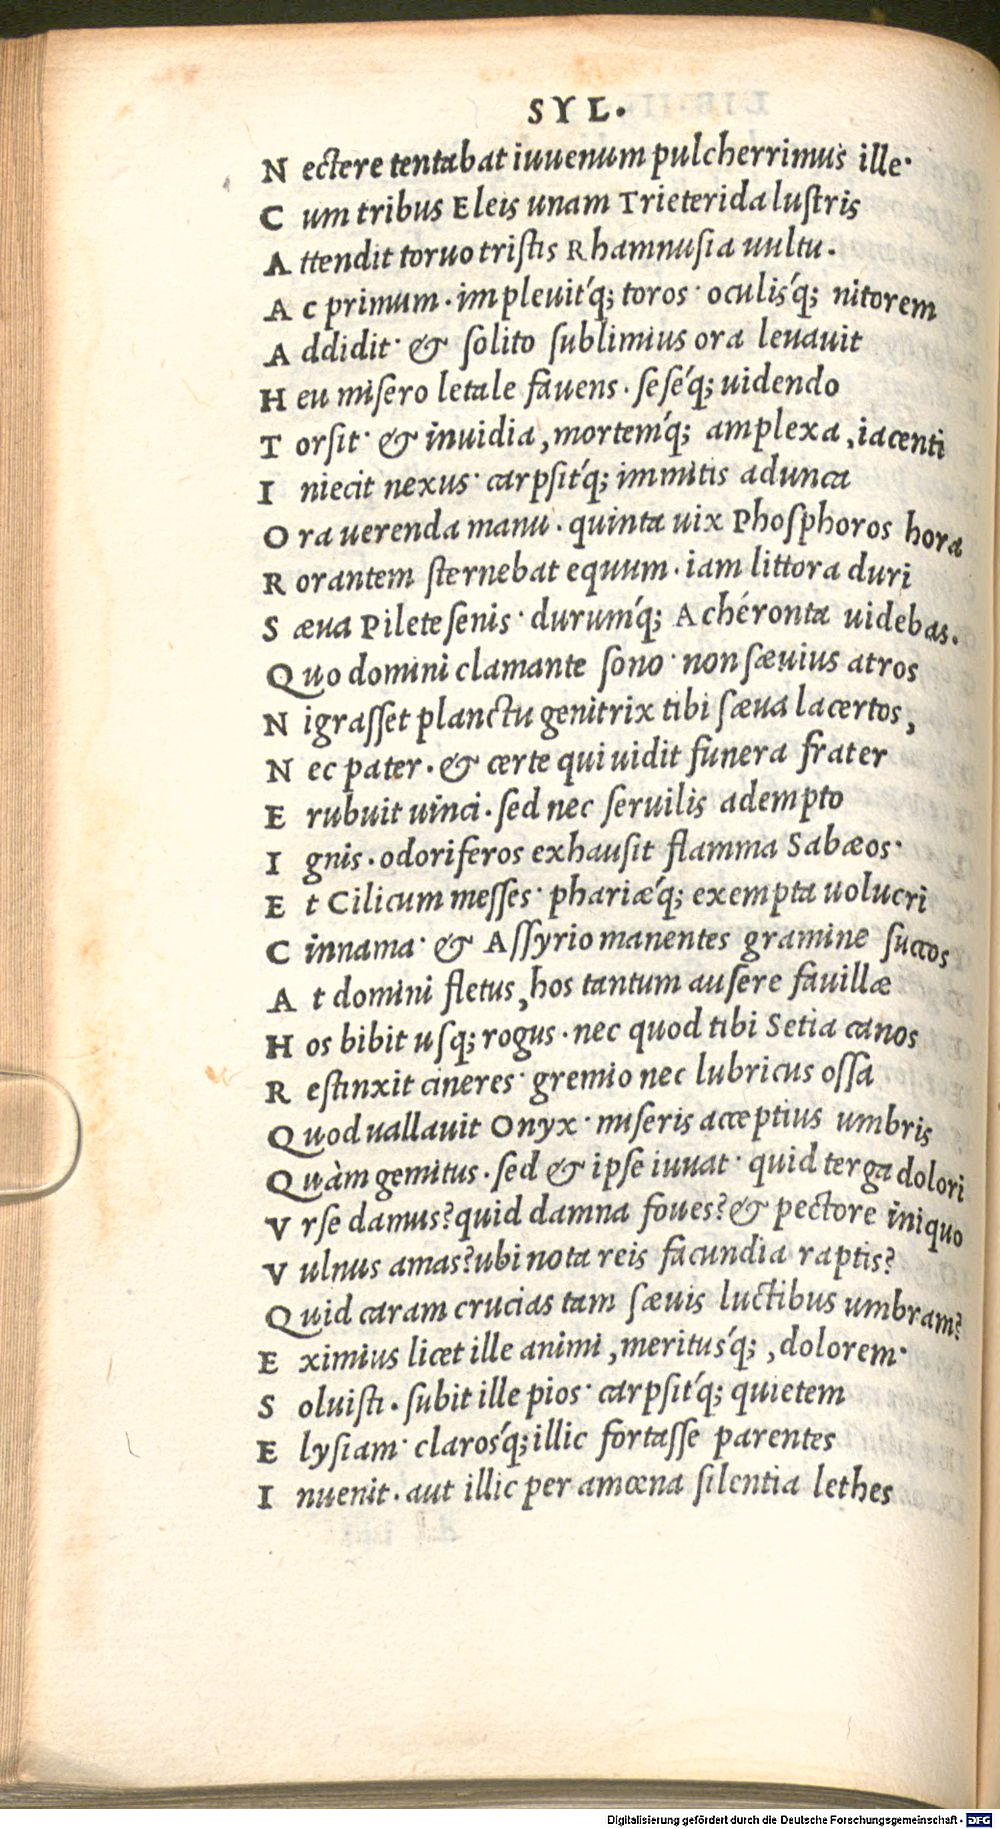 SYL.
Nectere tentabat iuuenum pulcherrimus ille·
Cum tribus Eleis unam Trieterida lustris
Attendit toruo tristis Rhamnusia uultu.
Ac primum·impleuit'q; toros·oculis'q; nitorem
Addidit·& solito sublimius ora leuauit
Heu misero letale fauens·sese'q; uidendo
Torsit·& inuidia, mortem'q; amplexa, iacenti
Iniecit nexus·carpsit'q; immitis adunca
Ora uerenda manu·quinta uix Phosphoros hora
Rorantem sternebat equum·iam littora duri
Sæua Pilete senis·durum'q; Achéronta uidebas.
Quo domini clamante sono·non sæuius atros
Nigrasset planctu genitrix tibi sæua lacertos,
Nec pater·& certe qui uidit funera frater
Erubuit uinci·sed nec seruilis adempto
Ignis·odoriferos exhausit flamma Sabæos·
Et Cilicum messes·phariæ'q; exempta uolucri
Cinnama·& Assyrio manentes gramine succos
At domini fletus, hos tantum ausere fauillæ
Hos bibit usq; rogus·nec quod tibi Setia canos
Restinxit cineres·gremio nec lubricus ossa
Quod uallauit Onyx·miseris acceptius umbris
Quàm gemitus·sed & ipse iuuat·quid terga dolori
Vrse damus? quid damna foues? & pectore iniquo
Vulnus amas? ubi nota reis facundia raptis?
Quid caram crucias tam sæuis luctibus umbram?
Eximius licet ille animi, meritus'q;, dolorem·
Soluisti·subit ille pios·carpsit'q; quietem
Elysiam·claros'q; illic fortasse parentes
Inuenit·aut illic per amœna silentia lethes
Digitalisierung gefördert durch die Deutsche Forschungsgemeinschaft - DFG